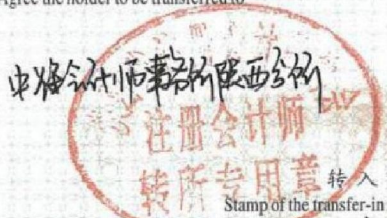 Agree the holder to be transferred to
会计师事务所陕西分所
注册会计师
转所专用章
转入
Stamp of the transfer-in